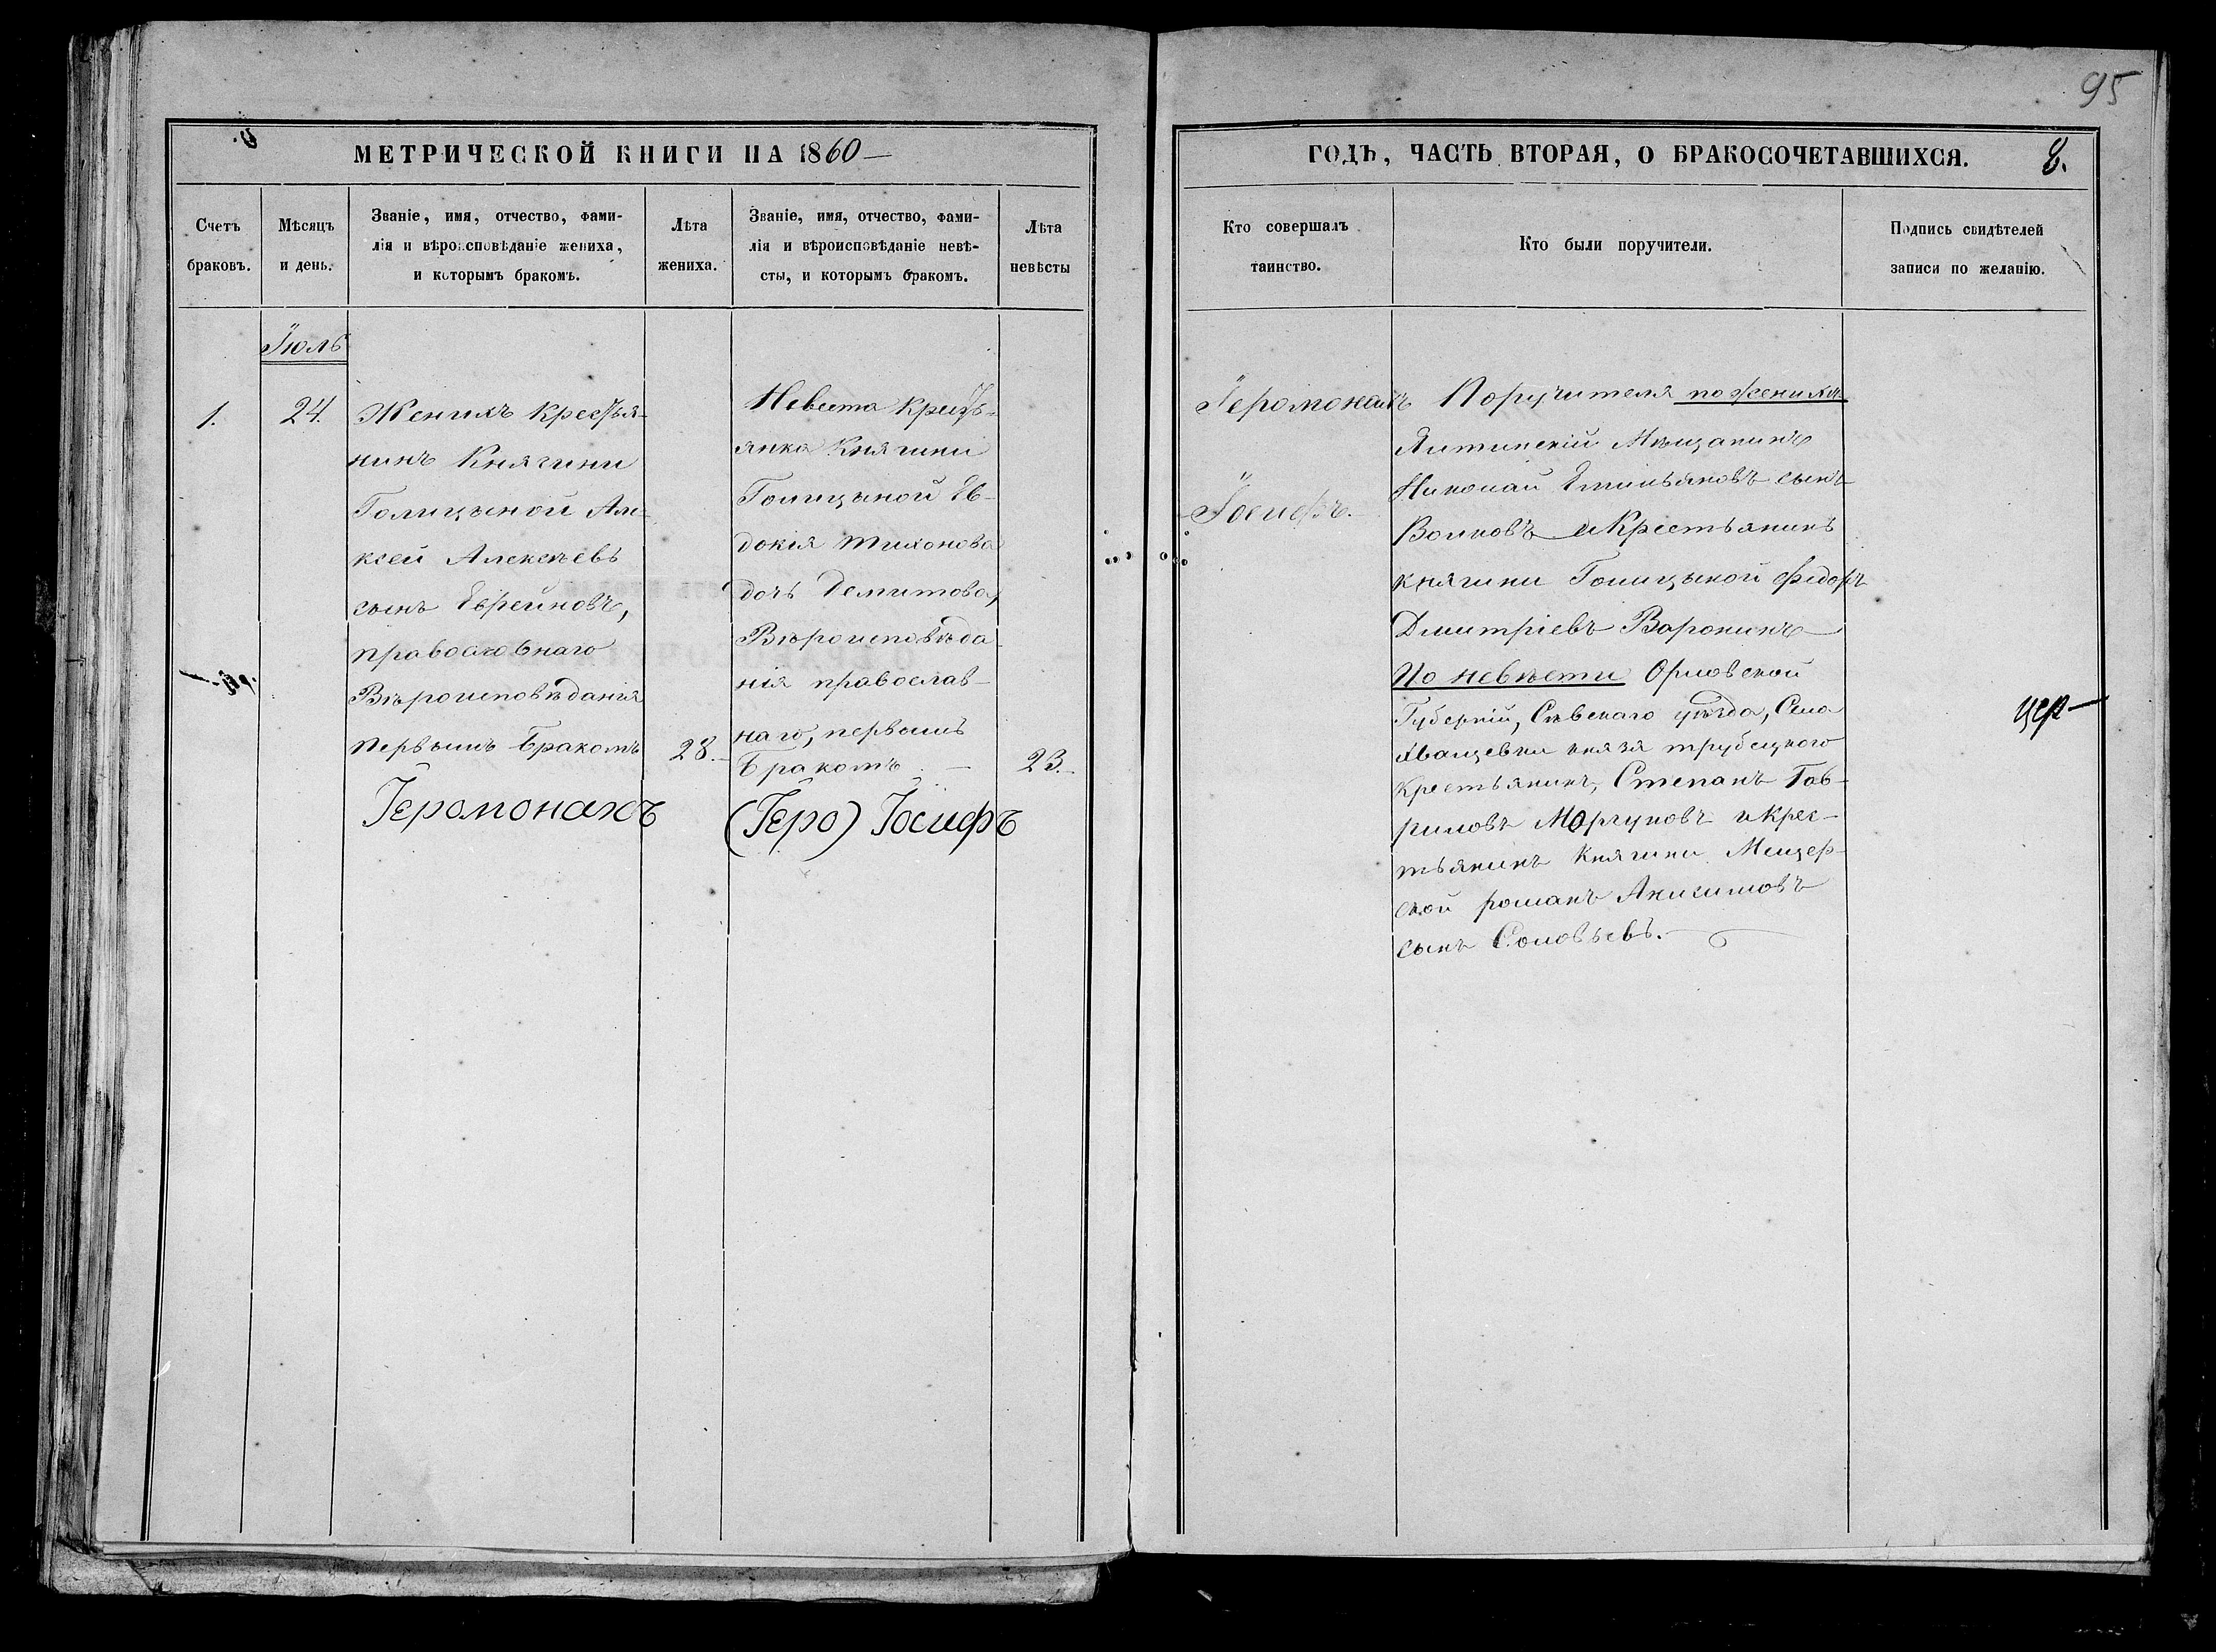 95
МЕТРИЧЕСКОЙ КНИГИ НА 1860
ГОДЪ, ЧАСТЬ ВТОРАЯ, О БРАКОСОЧЕТАВШИХСЯ.
Счетъ
браковъ.
Мѣсяцъ
и день.
Званіе, имя, отчество, фами-
лія и вѣроисповѣданіе жениха,
и которымъ бракомъ.
Лѣта
жениха.
Званіе, имя, отчество, фами-
лія и вѣроисповѣданіе невѣ-
сты, и которымъ бракомъ.
Лѣта
невѣсты
Кто совершалъ
таинство.
Кто были поручители.
Подпись свидѣтелей
записи по желанію.
Іюль
1.
24.
Женихъ крестья-
нинъ Княгини
Голицыной Але-
ксей Алексѣевъ
сынъ Евреиновъ,
православнаго
Вѣроисповѣданія
первымъ Бракомъ
28.
Іеромонахъ
Невеста крестъ-
янка Княгини
Голицыной Ев-
докия Тихонова
дочь Демитова,
Вѣроисповѣда-
нія православ-
наго, первымъ
Бракомъ
23.
(Іеро) Іосифъ
Іеромонахъ
Іосифъ.
Поручителя по жениха
Ялтинскій Мѣщанинъ
Николай Емильяновъ сынъ
Волковъ и Крестьянинъ
княгини Голицыной Фѣдоръ
Дмитріевъ Воронинъ
По невѣсти Орловской
Губерній, Сѣвскаго уѣзда, Села
Хвощевки князя трубецкого
крестьянинъ, Степанъ Гав-
риловъ Моргуновъ и крес-
тьянинъ княгини Мещер-
ской роман Анисимовъ
сынъ Соловьевъ.
цер